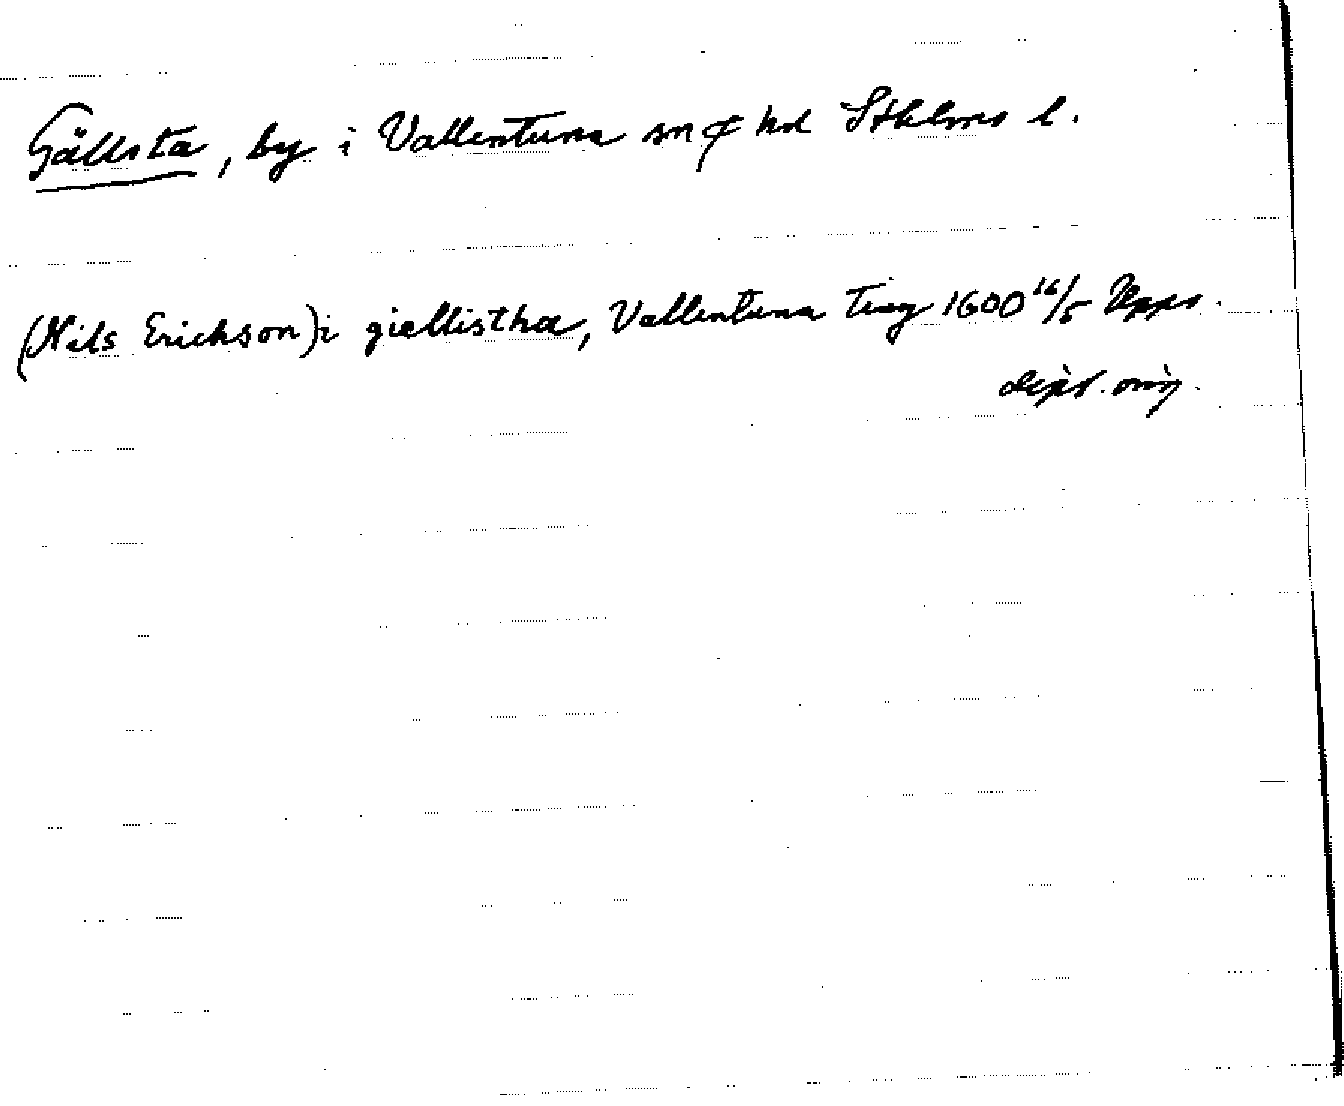 Gällsta, by i Vallentuna sn ȼ hd Sthlms l.
(Nils Erickson) i giællistha, Vallentuna Ting 1600 16/5 Upps.
dipl. orig.